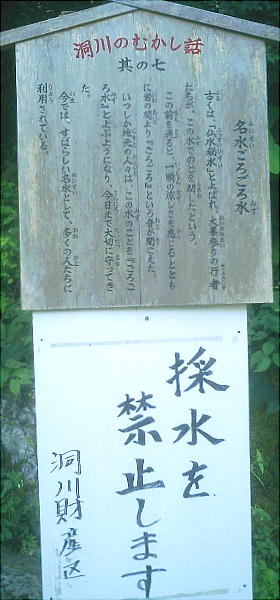 洞川のむかし話
其の七
名水ごろごろ水
古くは、「仏水秘水」とよばれ、大峯参りの行者
たちが、この水でのどを潤したという。
この前を通ると、一瞬の涼しさを感じるととも
に岩の間より『ごろごろ』という音が聞こえた。
いつしか地元の人々は、この水のことを『ごろご
ろ水』とよぶようになり、今日まで大切に守ってき
た。
今では、すばらしい名水として、多くの人たちに
利用されている。
採水を
禁止します
洞川財産区